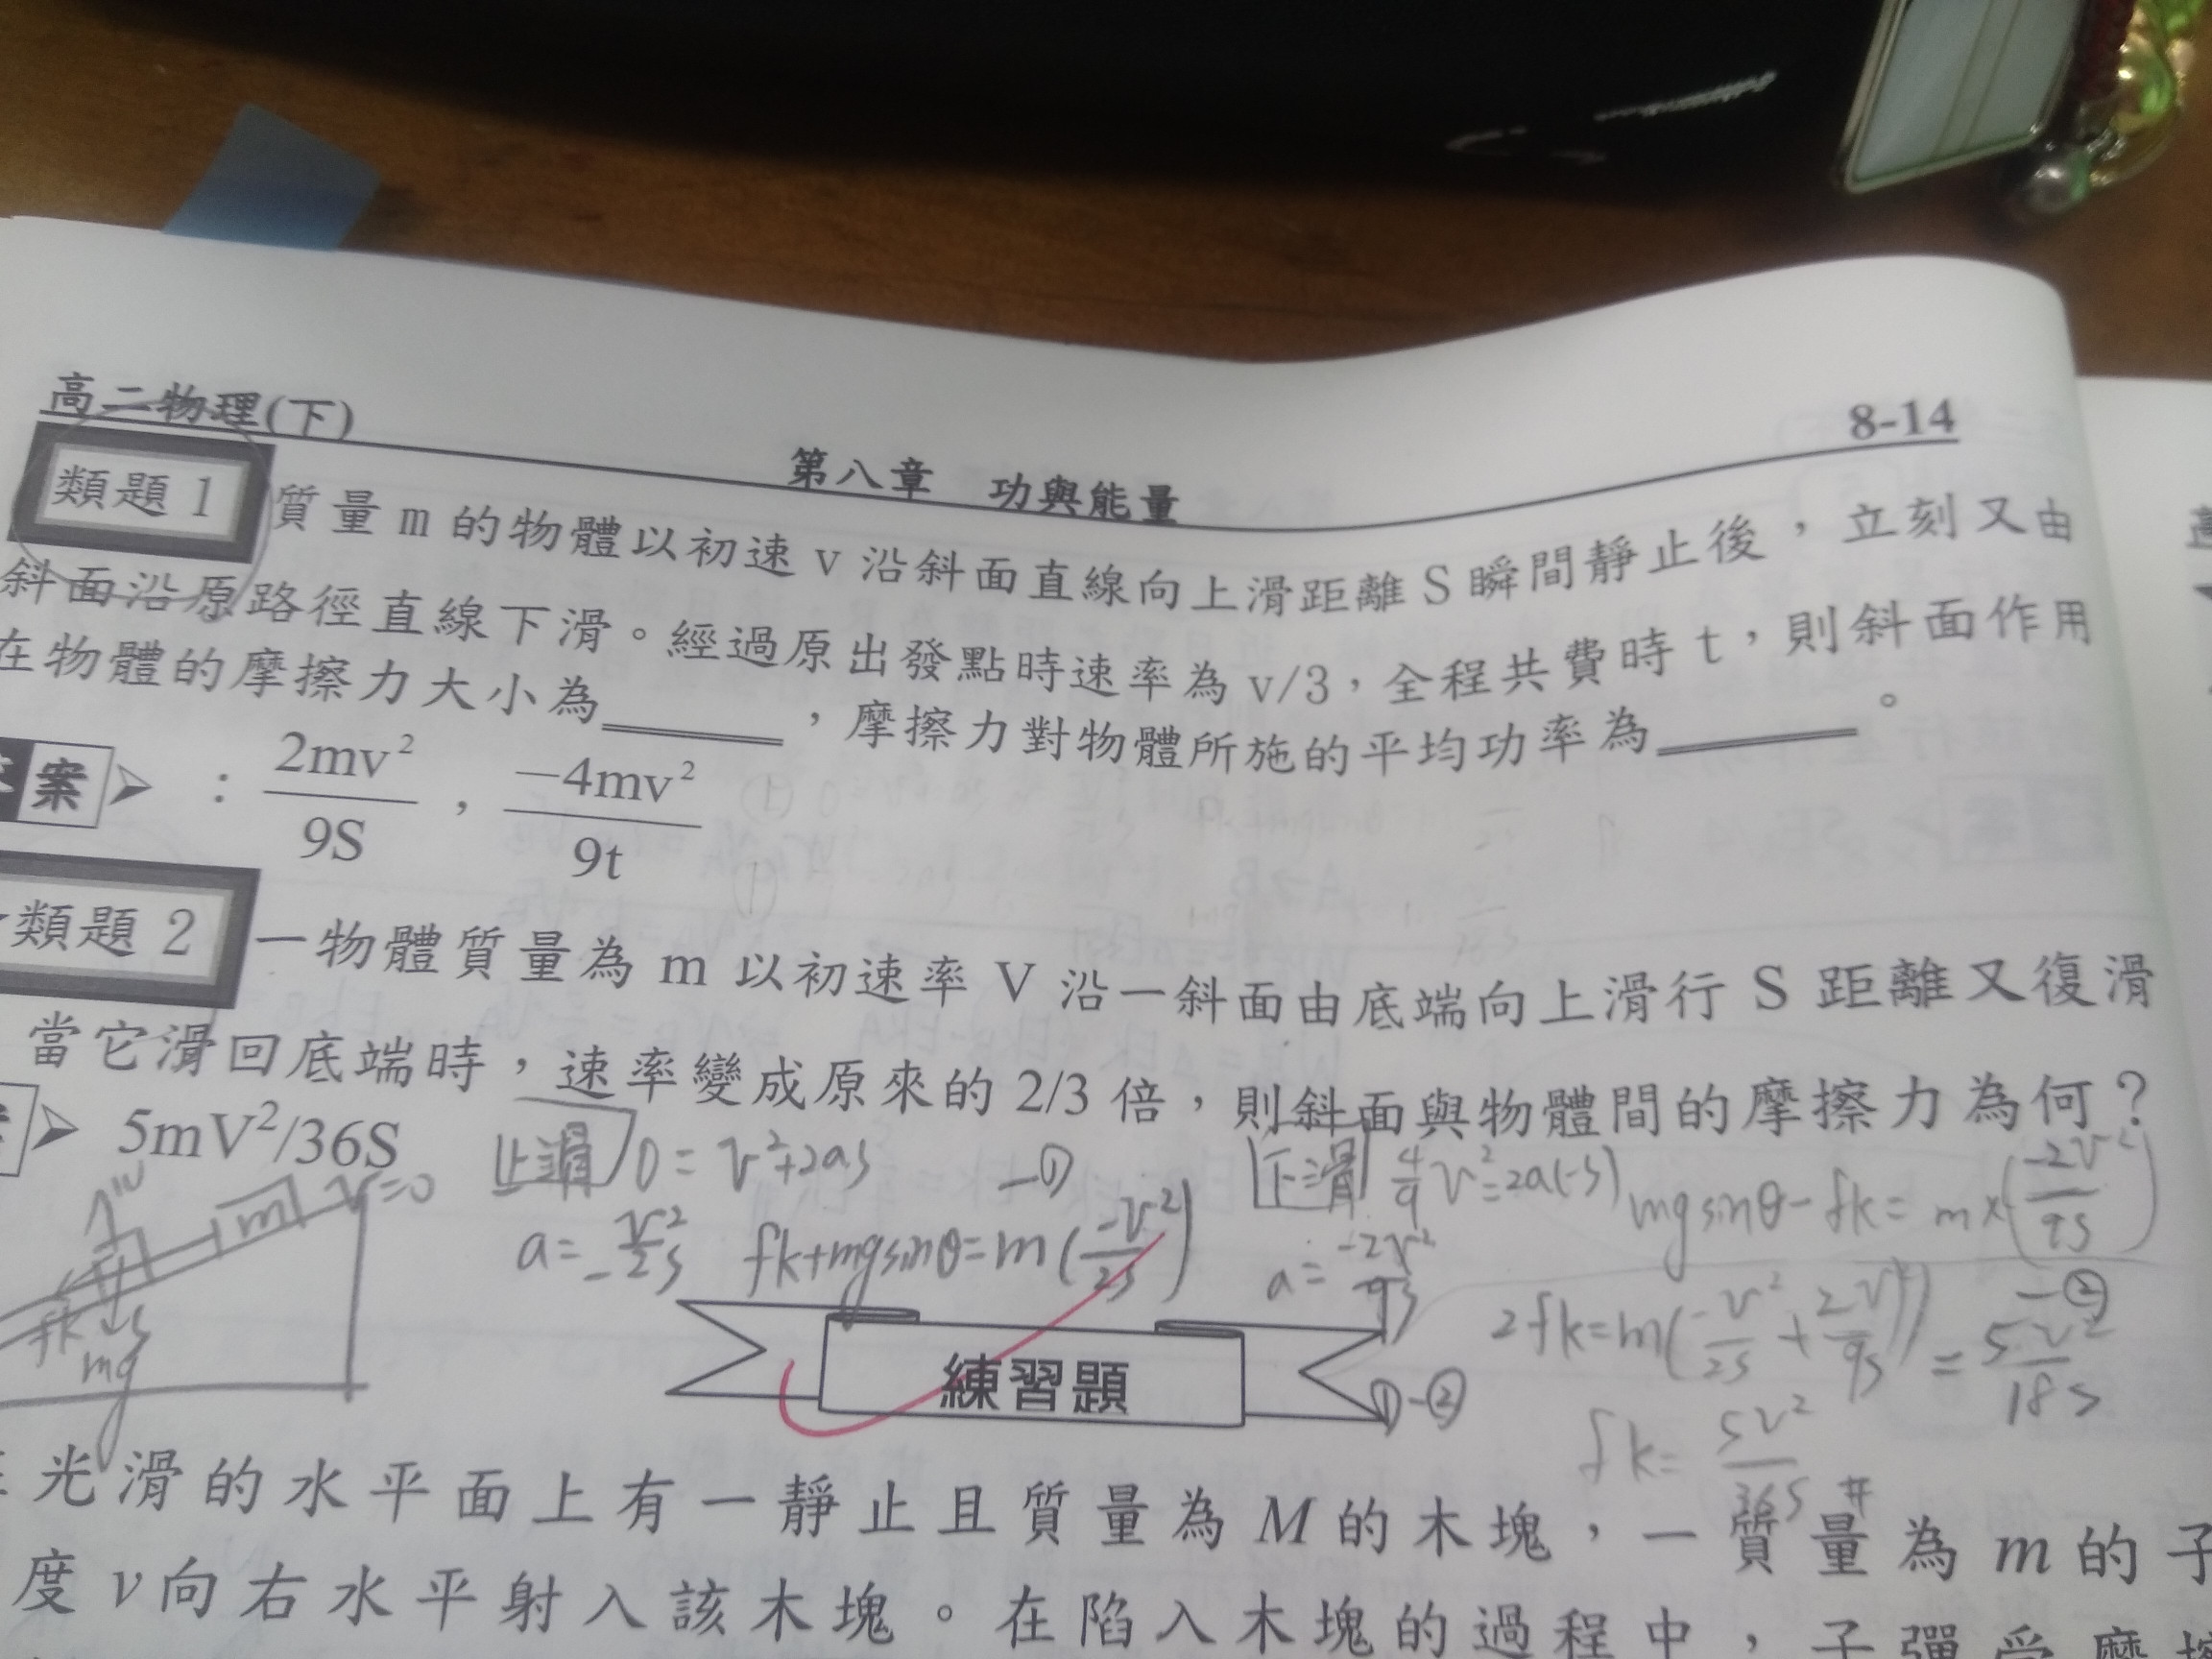 高二物理(下)
第八章 功與能量
8-14
類題 1 質量 m 的物體以初速 v 沿斜面直線向上滑距離 S 瞬間靜止後，立刻又由
斜面沿原路徑直線下滑。經過原出發點時速率為 v/3，全程共費時 t，則斜面作用
在物體的摩擦力大小為______，摩擦力對物體所施的平均功率為______。
案 ： 2mv²/9S ， −4mv²/9t
類題 2 一物體質量為 m 以初速率 V 沿一斜面由底端向上滑行 S 距離又復滑
當它滑回底端時，速率變成原來的 2/3 倍，則斜面與物體間的摩擦力為何？
5mV²/36S
上滑 0 = v²+2as —①
a = −v²/2s
fk+mgsinθ=m(−v²/2s)
下滑 4/9 v² = 2a(-s)
a = −2v²/9s
mgsinθ−fk = m×(−2v²/9s) —②
①−②
2fk=m(−v²/2s + 2v²/9s) = 5v²/18s
fk = 5v²/36s #
m v=0
fk
mg
練習題
光滑的水平面上有一靜止且質量為 M 的木塊，一質量為 m 的子
度 v 向右水平射入該木塊。在陷入木塊的過程中，子彈受摩擦